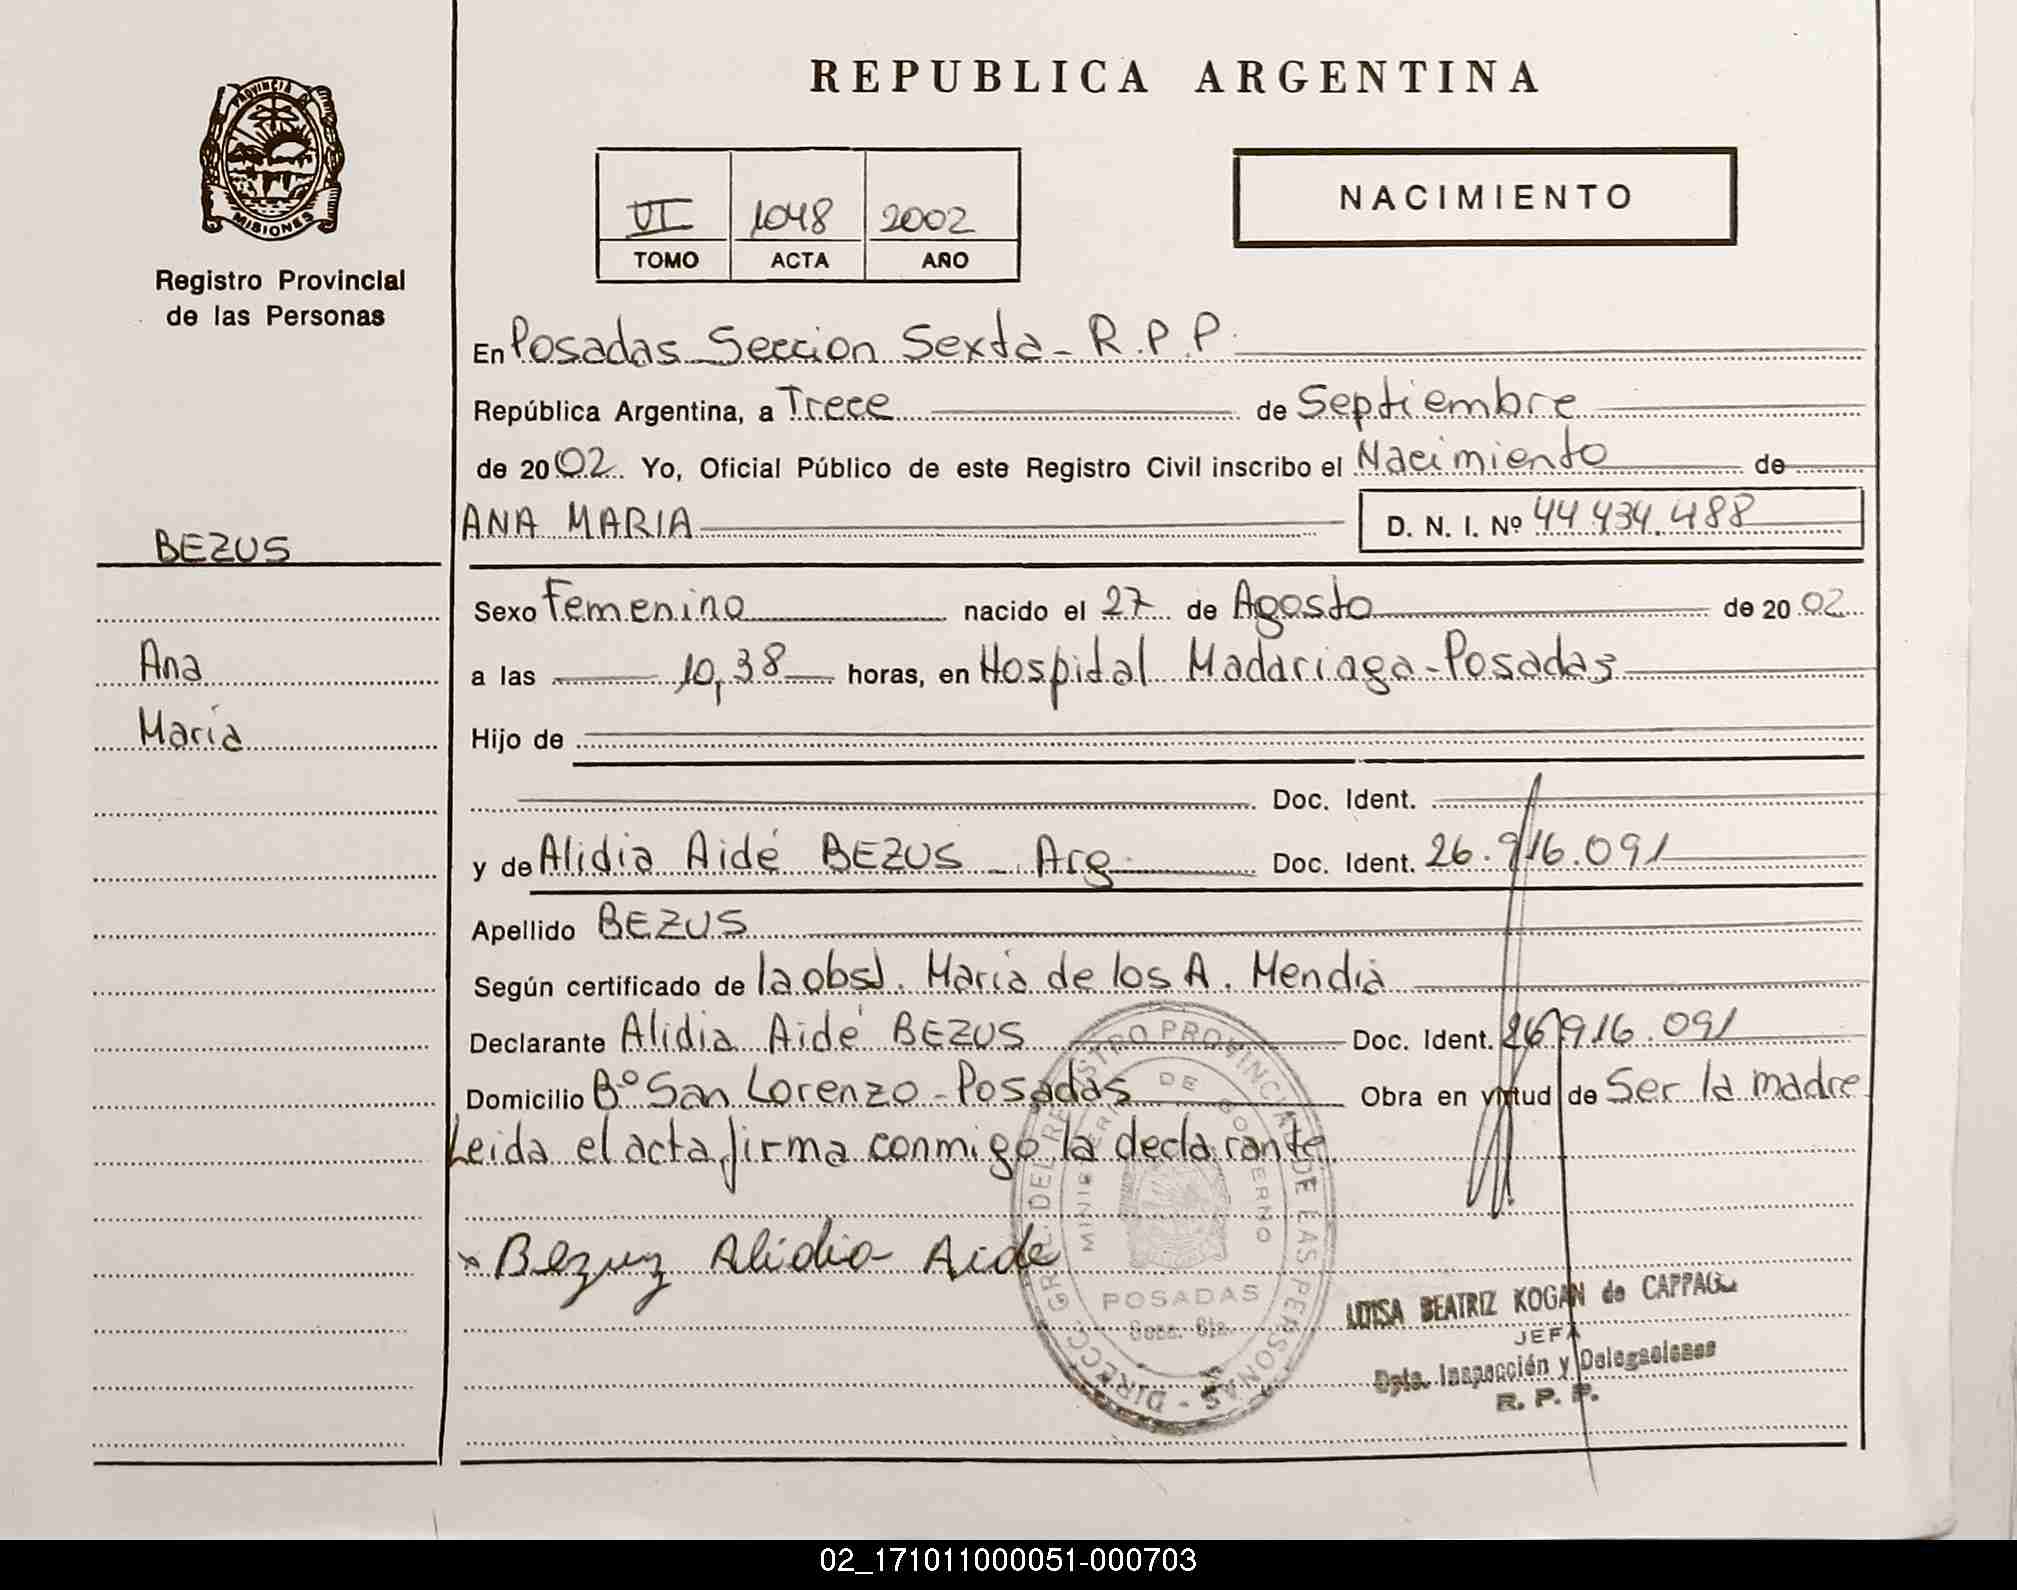 PROVINCIA DE
MISIONES
Registro Provincial
de las Personas
BEZUS
Ana
María
REPUBLICA ARGENTINA
VI 1048 2002
TOMO ACTA AÑO
NACIMIENTO
En Posadas Seccion Sexta - R.P.P.
República Argentina, a Trece de Septiembre
de 2002. Yo, Oficial Público de este Registro Civil inscribo el Nacimiento de
ANA MARIA D. N. I. Nº 44.434.488
Sexo Femenino nacido el 27 de Agosto de 2002
a las 10,38 horas, en Hospital Madariaga - Posadas
Hijo de
Doc. Ident.
y de Alidia Aidé BEZUS - Arg. Doc. Ident. 26.916.091
Apellido BEZUS
Según certificado de la obst. María de los A. Mendia
Declarante Alidia Aidé BEZUS Doc. Ident. 26.916.091
Domicilio Bº San Lorenzo - Posadas Obra en virtud de Ser la madre
Leida el acta firma conmigo la declarante
x Bezuz Alidia Aide
DIRECC. GRAL. DEL REGISTRO PROVINCIAL DE LAS PERSONAS
MINISTERIO DE GOBIERNO
POSADAS
LUISA BEATRIZ KOGAN de CAPPAGLI
JEFA
Dpto. Inspección y Delegaciones
R. P. P.
02_171011000051-000703